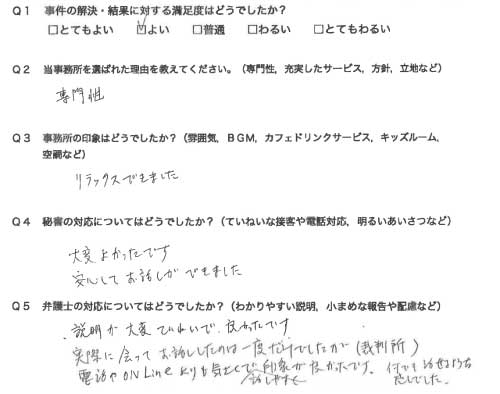 Q1 事件の解決・結果に対する満足度はどうでしたか?
□とてもよい ☑よい □普通 □わるい □とてもわるい
Q2 当事務所を選ばれた理由を教えてください。(専門性，充実したサービス，方針，立地など)
専門性
Q3 事務所の印象はどうでしたか?(雰囲気，BGM，カフェドリンクサービス，キッズルーム，
空調など)
リラックスできました
Q4 秘書の対応についてはどうでしたか?(ていねいな接客や電話対応，明るいあいさつなど)
大変よかったです
安心してお話しができました
Q5 弁護士の対応についてはどうでしたか?(わかりやすい説明，小まめな報告や配慮など)
・説明が大変ていねいで、良かったです
実際に会ってお話ししたのは一度だけでしたが(裁判所)
電話やON Lineよりも 印象が良かったです。何でも話せる
話しやすく 感じでした。